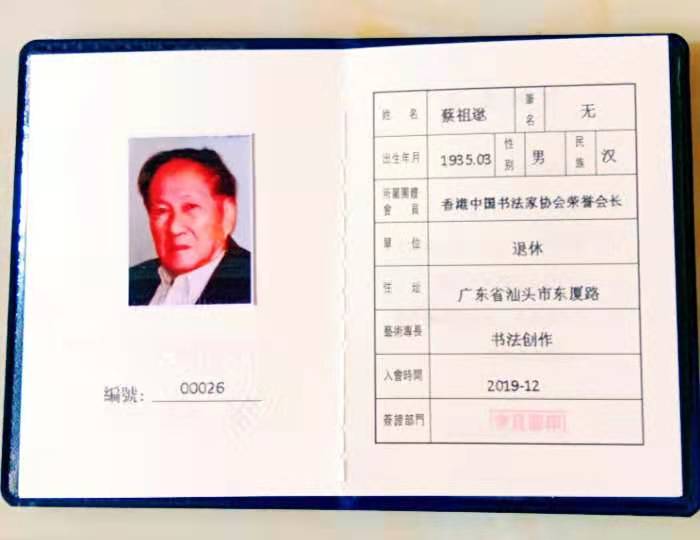 編號：00026
姓名 蔡祖逖 筆名 无
出生年月 1935.03 性别 男 民族 汉
所屬團體會員 香港中国书法家协会荣誉会长
單位 退休
住址 广东省汕头市东厦路
藝術專長 书法创作
入會時間 2019-12
簽證部門